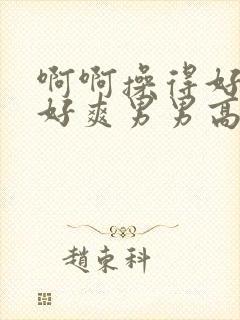 啊啊操得好
好爽男男高
趙束科